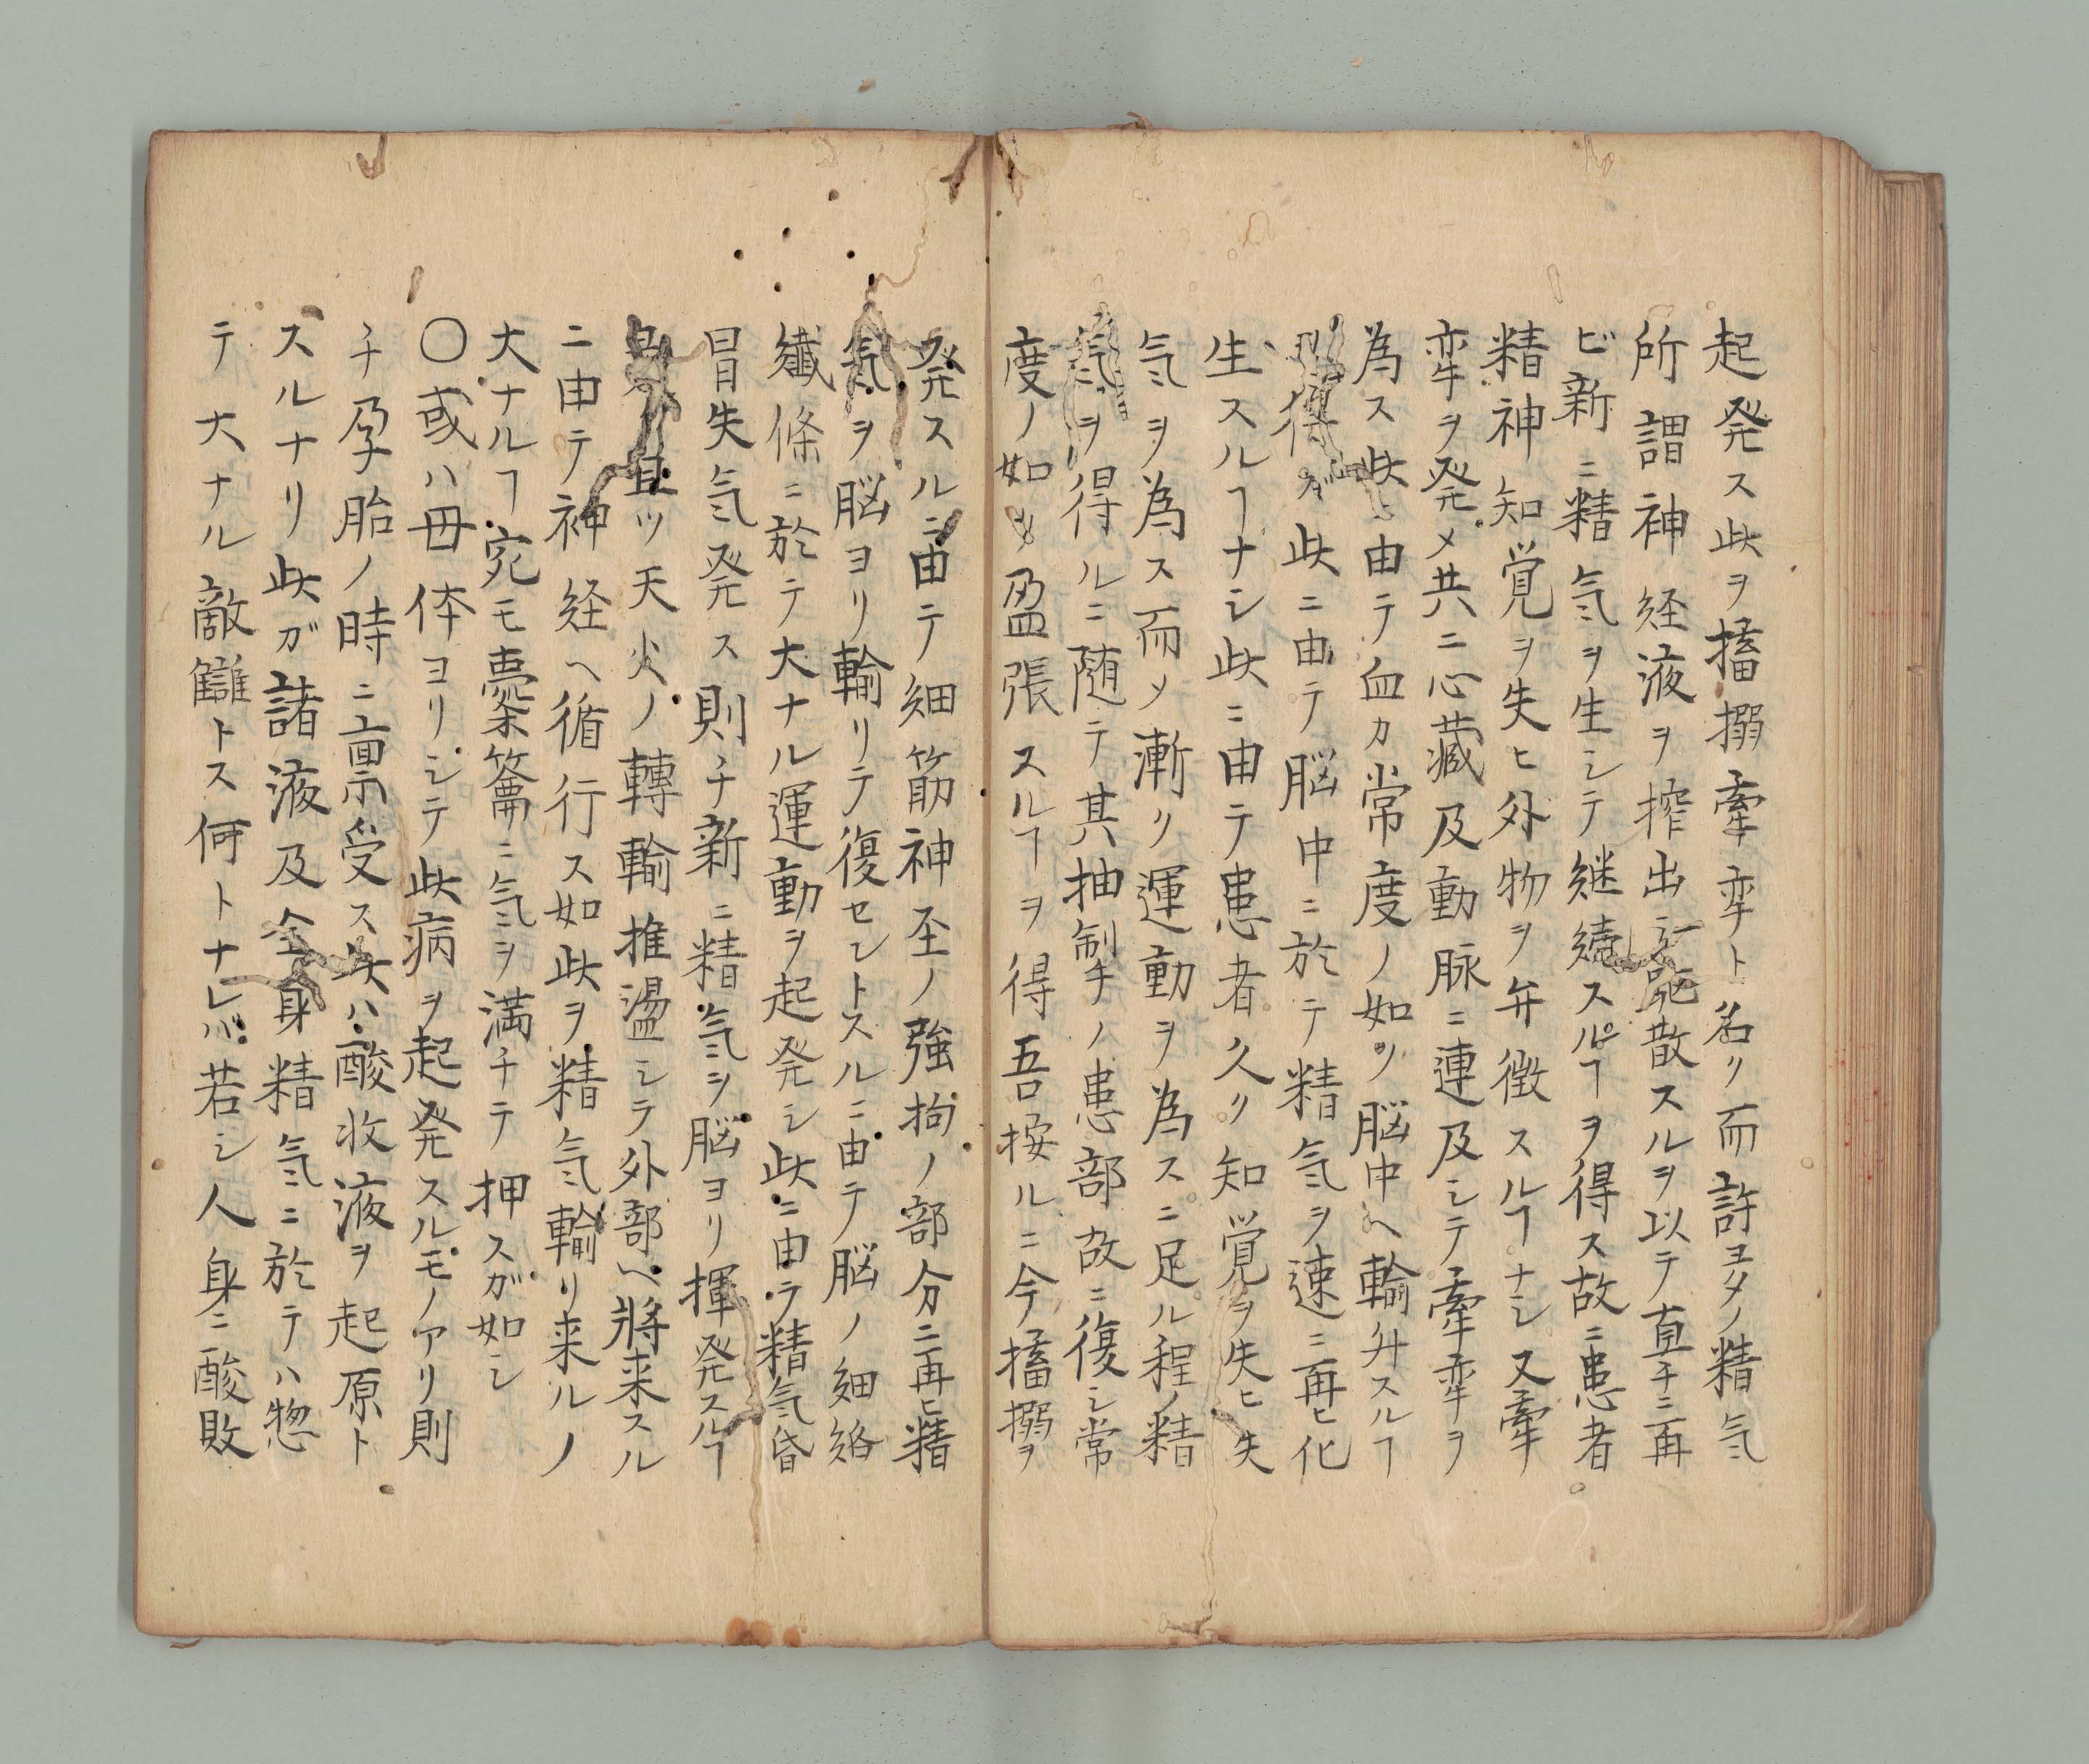 起発ス此ヲ搐搦牽孿ト名リ而許ヨタノ精気
所謂神経液ヲ搾出シ飛散スルヲ以テ直チニ再
ビ新ニ精気ヲ生シテ継續スルヿヲ得ス故ニ患者
精神知覚ヲ失ヒ外物ヲ弁徴スルヿナシ又牽
孿ヲ発メ共ニ心藏及動脉ニ連及シテ牽孿ヲ
為ス此ニ由テ血カ常度ノ如ク脳中ヘ輸舛スルヿ
得ズ此ニ由テ脳中ニ於テ精気ヲ速ニ再ヒ化
生スルヿナシ此ニ由テ患者久ク知覚ヲ失ヒ失
気ヲ為ス而メ漸ク運動ヲ為スニ足ル程ノ精
気ヲ得ルニ随テ其抽制チノ患部故ニ復シ常
度ノ如ク盈張スルヿヲ得吾按ルニ今搐搦ヲ
発スルニ由テ細筋神至ノ強拘ノ部分ニ再ヒ精
気ヲ脳ヨリ輸リテ復セントスルニ由テ脳ノ細絡
纎條ニ於テ大ナル運動ヲ起発シ此ニ由ラ精気昏
冒失気発ス則チ新ニ精気ヲ脳ヨリ揮発スルヿ
且ツ天火ノ轉輸推盪シテ外部ヘ將来スル
ニ由テ神経ヘ循行ス如此ヲ精気輸リ来ルノ
大ナルヿ宛モ橐籥ニ気ヲ満チテ押スガ如シ
〇或ハ母体ヨリシテ此病ヲ起発スルモノアリ則
チ孕胎ノ時ニ稟受ス此ハ酸收液ヲ起原ト
スルナリ此ガ諸液及全身精気ニ於テハ惣
テ大ナル敵讎トス何トナレバ若シ人身ニ酸敗